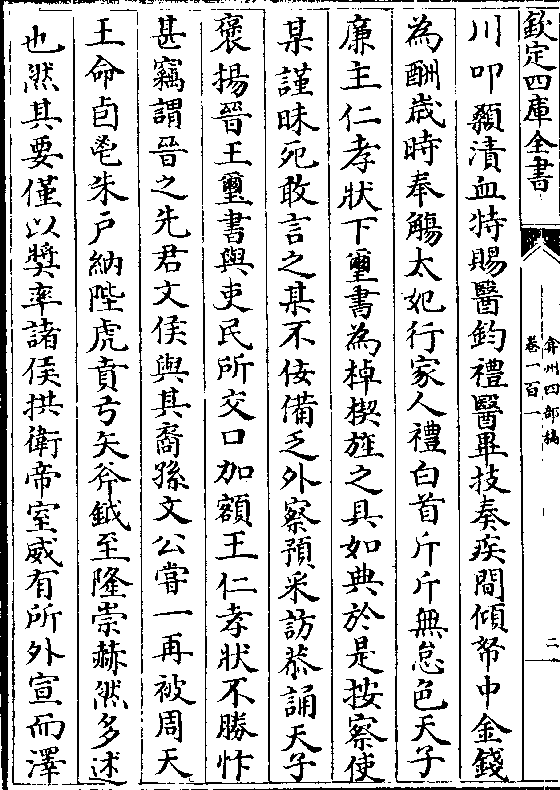 欽定四庫全書
弇州四部稿
卷一百一
二
川叩顙漬血特賜醫鈞禮醫畢技奏疾間傾帑中金錢
為酬歲時奉觴太妃行家人禮白首斤斤無怠色天子
廉主仁孝狀下璽書為棹楔旌之具如典於是按察使
某謹昧死敢言之某不佞備乏外察預采訪恭誦天子
褒揚晉王璽書與吏民所交口加額王仁孝狀不勝忭
甚竊謂晉之先君文侯與其裔孫文公嘗一再被周天
王命卣鬯朱戶納陛虎賁弓矢斧鉞至隆崇赫然多述
也然其要僅以奬率諸侯拱衛帝室威有所外宣而澤